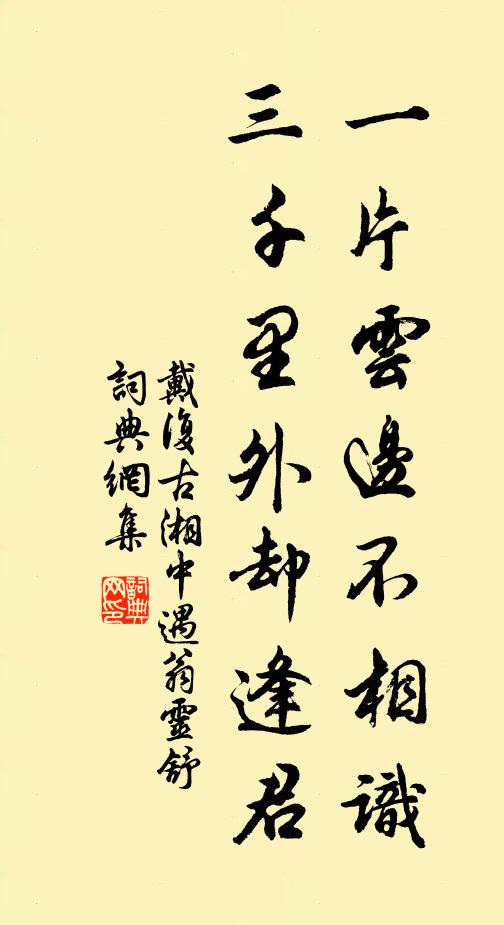 一片雲邊不相識
三千里外却逢君
戴復古湘中遇翁靈舒
詞典網集
詞典网印